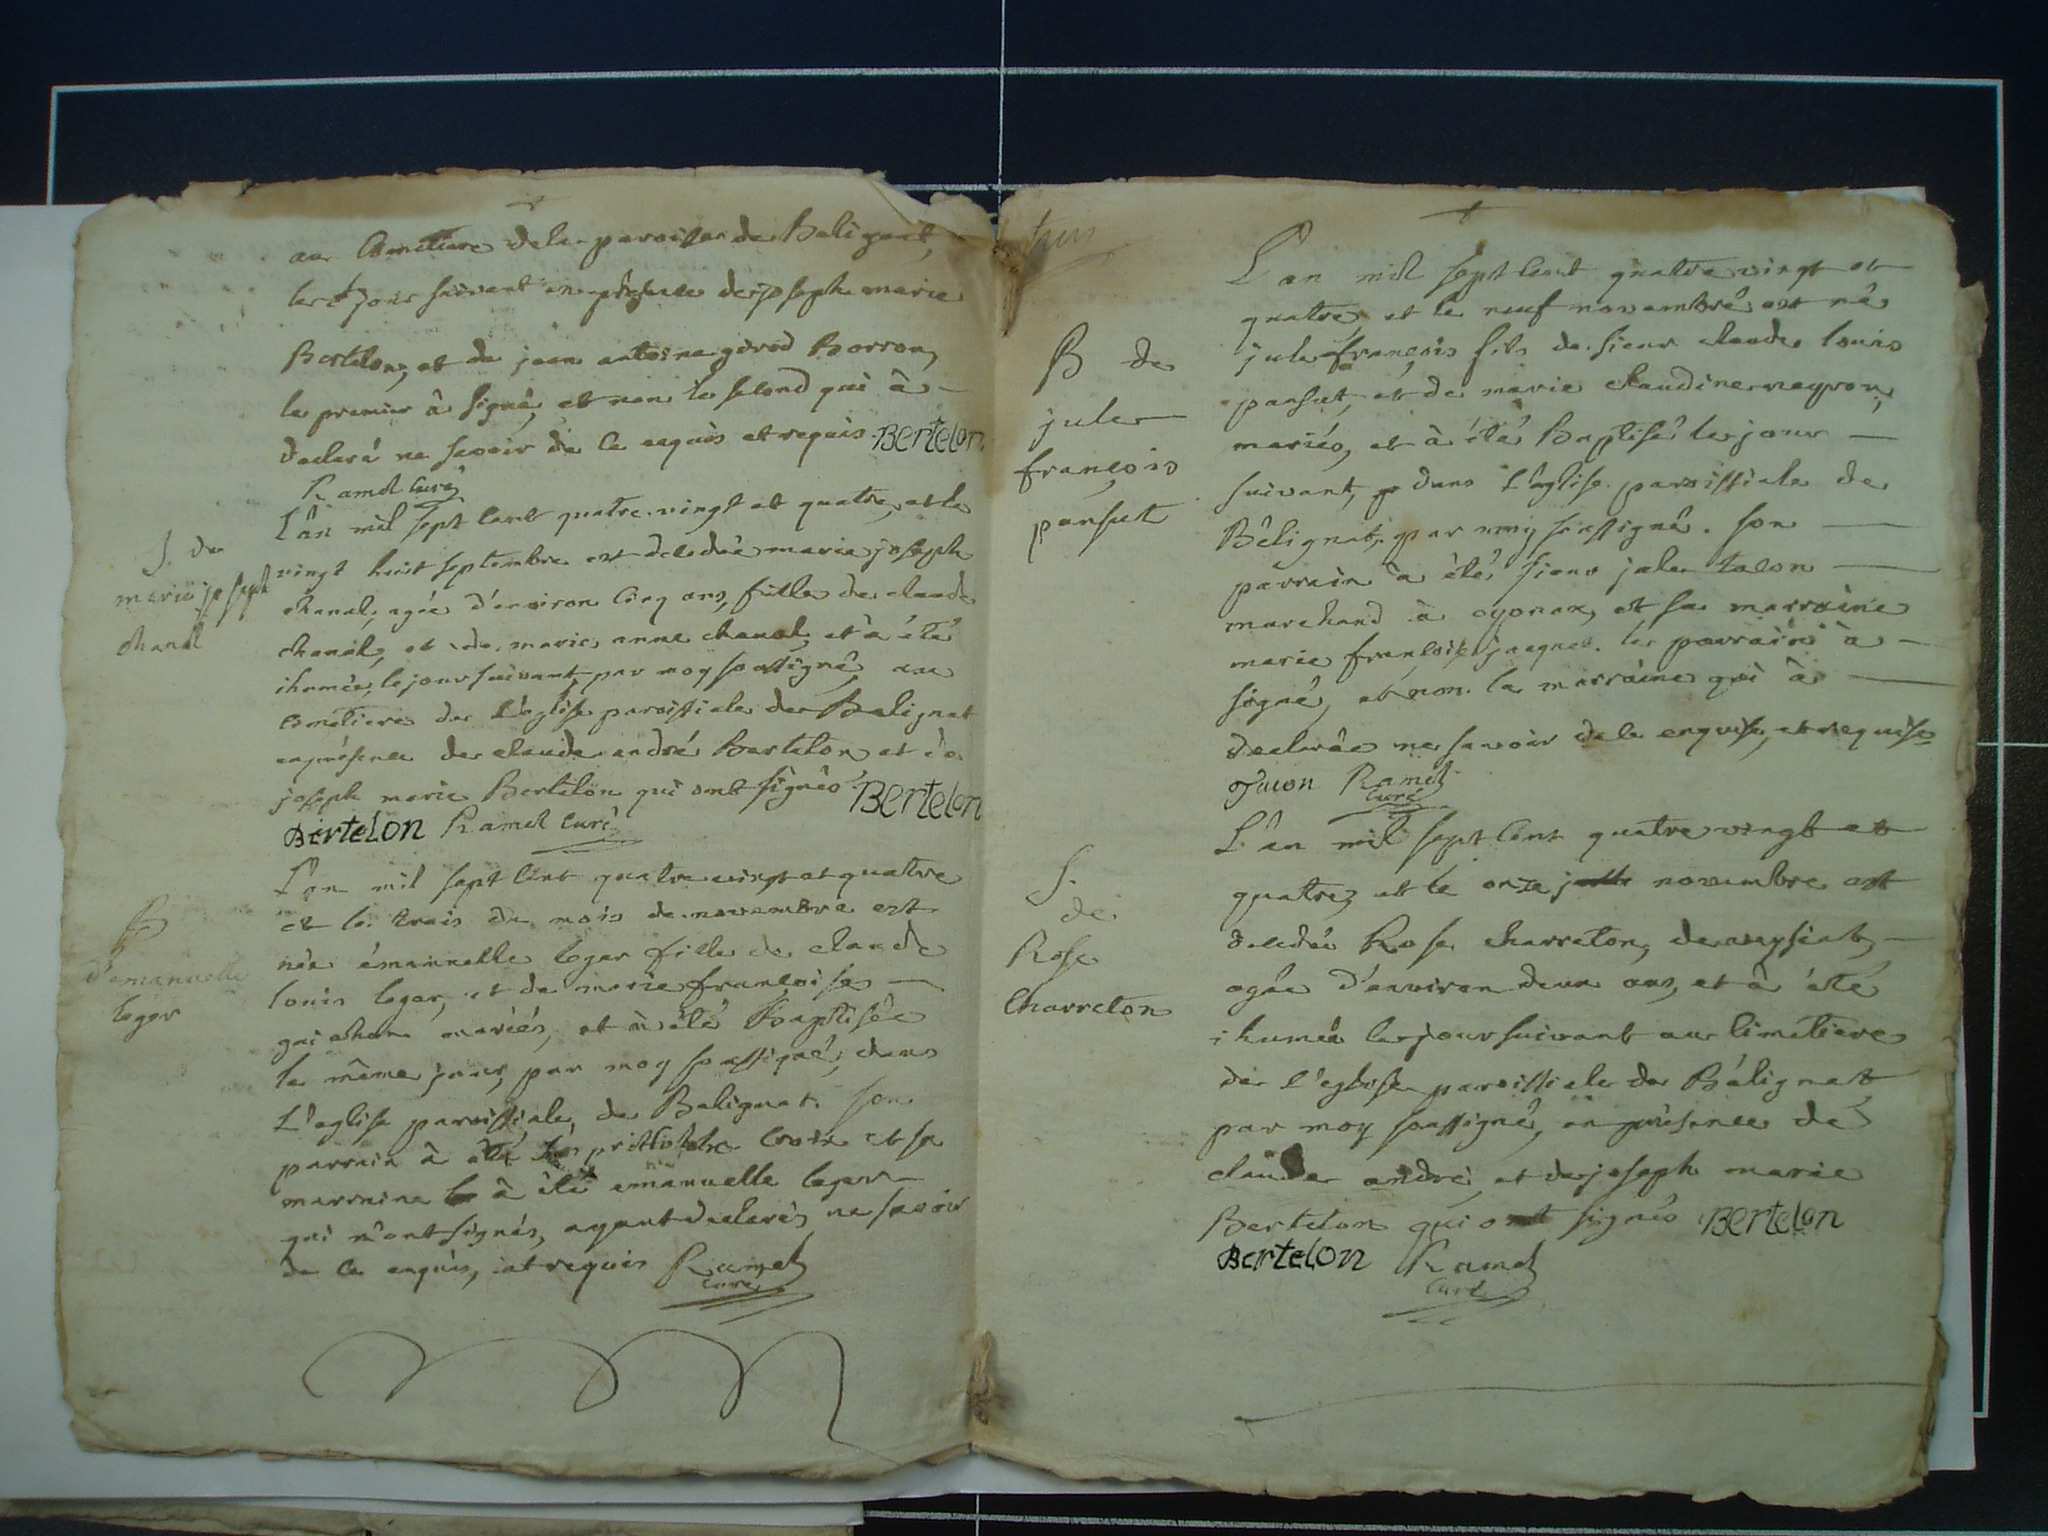 au Cemetiere dela paroisse de Belignat,
le jour suivant en présence de joseph marie
Bertelon, et de jean antoine girod Borron,
le premier à signé, et non le second qui à
declaré ne savoir de ce enquis et requis Bertelon
Ramel Curé
L'an mil sept cent quatre vingt et quatre, et le
vingt huit septembre est décédée marie joseph
chanal, agée d'environ cinq ans, fille de claude
chanal, et de marie anne chanal, et à été
ihumée, le jour suivant, par moy soussigné, au
cemetiere de l'église paroissiale de Belignat
en présence de claude andré Bertelon, et de
joseph marie Bertelon qui ont signés Bertelon
Bertelon Ramel Curé
S. de
marie joseph
chanal
L'an mil sept cent quatre vingt et quatre
et le trois du mois de novembre est
née émanuelle leger fille de claude
louis leger, et de marie françoise
mariés, et à été Baptisée
le même jour, par moy soussigné, dans
L'eglise paroissiale, de Belignat. son
parrain à été et sa
marraine à été emanuelle leger
qui n'ont signés, ayant declarés ne savoir
de ce enquis, et requis Ramel
Curé
B
d'emanuelle
leger
L'an mil sept cent quatre vingt et
quatre et le neuf novembre est né
jule françois fils de sieur claude louis
pansut, et de marie claudine neyron,
mariés, et à été Baptisé le jour
suivant, dans L'église paroissiale de
Bélignat, par moy soussigné. son
parrain à été sieur jule tacon
marchand à oyonax, et sa marraine
marie françoise jaquet. le parrain à
signé, et non la marraine qui à
declarée ne savoir de ce enquise, et requise
Tacon Ramel
Curé
B de
jule
françois
pansut
L'an mil sept cent quatre vingt et
quatre, et le onze novembre est
décédée Rose charreton, de veysiat,
agée d'environ deux ans, et à été
ihumée le jour suivant au cimetiere
de l'eglise paroissiale de Bélignat
par moy soussigné, en présence de
claude andré, et de joseph marie
Bertelon qui ont signés Bertelon
Bertelon Ramel
Curé
S.
de
Rose
Charreton